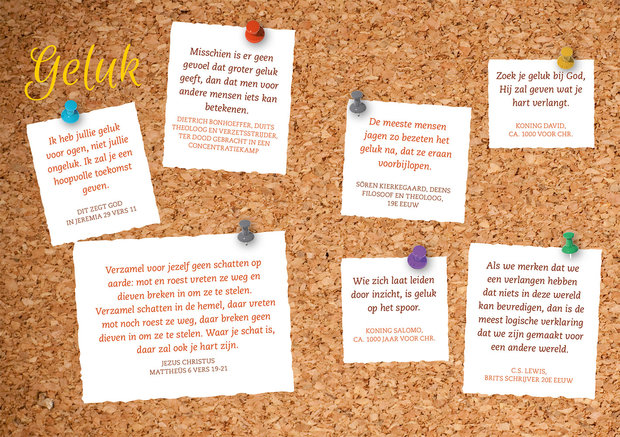 Geluk
Ik heb jullie geluk
voor ogen, niet jullie
ongeluk. Ik zal je een
hoopvolle toekomst
geven.
DIT ZEGT GOD
IN JEREMIA 29 VERS 11
Misschien is er geen
gevoel dat groter geluk
geeft, dan dat men voor
andere mensen iets kan
betekenen.
DIETRICH BONHOEFFER, DUITS
THEOLOOG EN VERZETSSTRIJDER,
TER DOOD GEBRACHT IN EEN
CONCENTRATIEKAMP
De meeste mensen
jagen zo bezeten het
geluk na, dat ze eraan
voorbijlopen.
SÖREN KIERKEGAARD, DEENS
FILOSOOF EN THEOLOOG,
19E EEUW
Zoek je geluk bij God,
Hij zal geven wat je
hart verlangt.
KONING DAVID,
CA. 1000 VOOR CHR.
Verzamel voor jezelf geen schatten op
aarde: mot en roest vreten ze weg en
dieven breken in om ze te stelen.
Verzamel schatten in de hemel, daar vreten
mot noch roest ze weg, daar breken geen
dieven in om ze te stelen. Waar je schat is,
daar zal ook je hart zijn.
JEZUS CHRISTUS
MATTHEÜS 6 VERS 19-21
Wie zich laat leiden
door inzicht, is geluk
op het spoor.
KONING SALOMO,
CA. 1000 JAAR VOOR CHR.
Als we merken dat we
een verlangen hebben
dat niets in deze wereld
kan bevredigen, dan is de
meest logische verklaring
dat we zijn gemaakt voor
een andere wereld.
C.S. LEWIS,
BRITS SCHRIJVER 20E EEUW